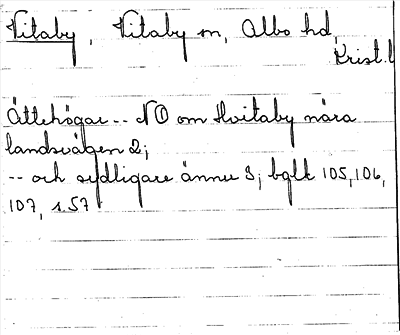 Vitaby, Vitaby sn, Albo hd,
Krist.l
Ättehögar -- NO om Hvitaby nära
landsvägen 2;
-- och sydligare ännu 3; bglk 105,106,
107, s.57